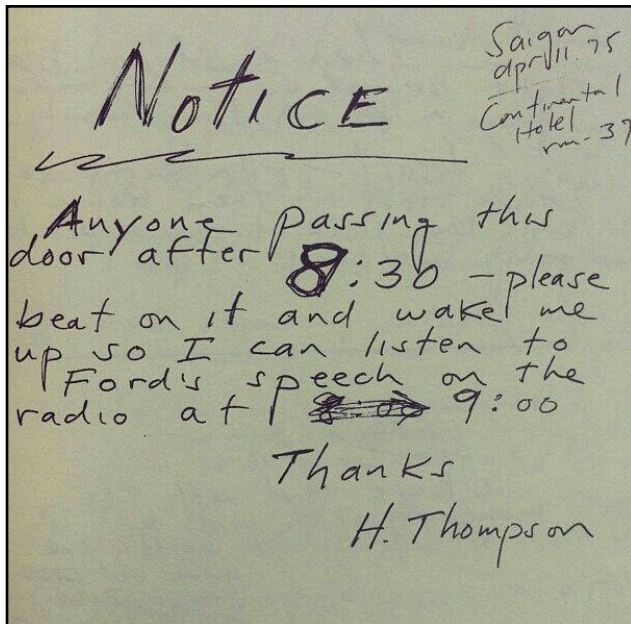 Saigon
april 11. 75
Continental
Hotel
rm - 37
NOTICE
Anyone passing this
door after 8:30 - please
beat on it and wake me
up so I can listen to
Ford's speech on the
radio at 9:00
Thanks
H. Thompson